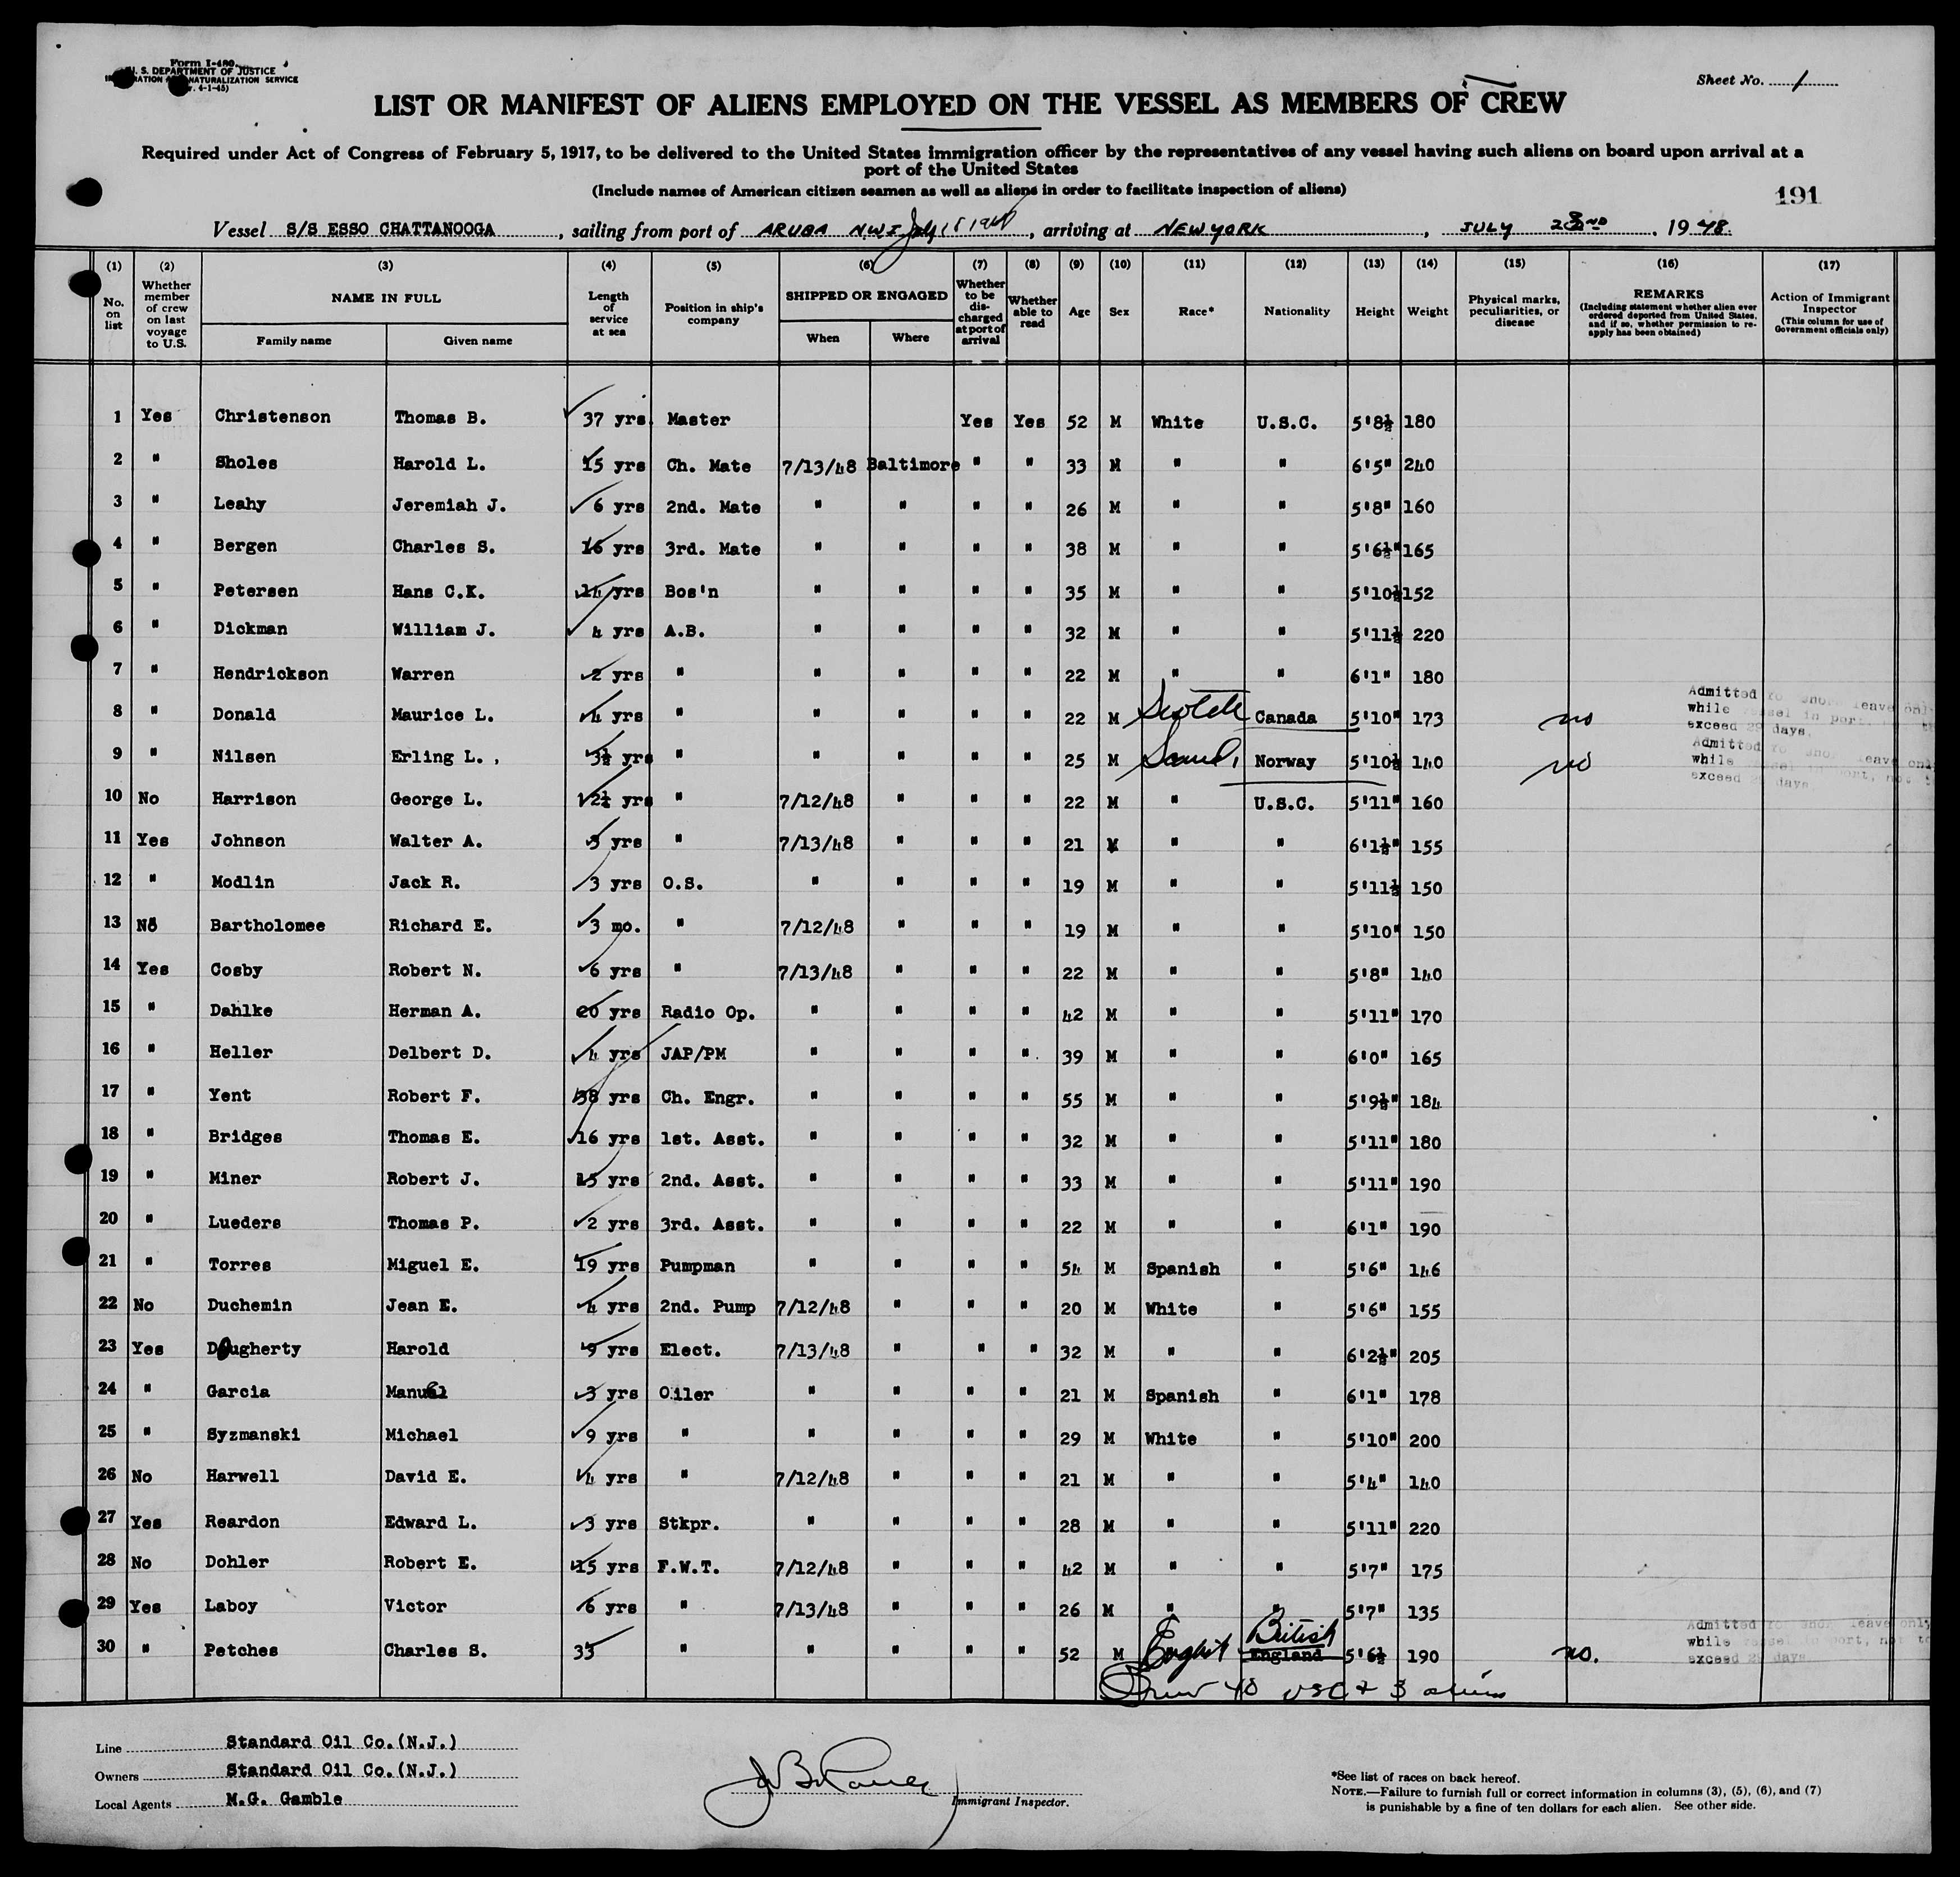 Form I-480
U. S. DEPARTMENT OF JUSTICE
NATURALIZATION SERVICE
4-1-45)
Sheet No. 1
LIST OR MANIFEST OF ALIENS EMPLOYED ON THE VESSEL AS MEMBERS OF CREW
Required under Act of Congress of February 5, 1917, to be delivered to the United States immigration officer by the representatives of any vessel having such aliens on board upon arrival at a
port of the United States
(Include names of American citizen seamen as well as aliens in order to facilitate inspection of aliens)
191
Vessel S/S ESSO CHATTANOOGA, sailing from port of ARUBA N.W.I July, arriving at NEW YORK, JULY, 1948.
(1) (2) (3) (4) (5) (6) (7) (8) (9) (10) (11) (12) (13) (14) (15) (16) (17)
No. on list
Whether member of crew on last voyage to U.S.
NAME IN FULL
Family name Given name
Length of service at sea
Position in ship's company
SHIPPED OR ENGAGED
When Where
Whether to be discharged at port of arrival
Whether able to read
Age Sex Race* Nationality Height Weight
Physical marks, peculiarities, or disease
REMARKS
(Including statement whether alien ever ordered deported from United States, and if so, whether permission to reapply has been obtained)
Action of Immigrant Inspector
(This column for use of Government officials only)
1 Yes Christenson Thomas B. 37 yrs. Master Yes Yes 52 M White U.S.C. 5'8½ 180
2 " Sholes Harold L. 15 yrs Ch. Mate 7/13/48 Baltimore " " 33 M " " 6'5" 240
3 " Leahy Jeremiah J. 6 yrs 2nd. Mate " " " " 26 M " " 5'8" 160
4 " Bergen Charles S. 16 yrs 3rd. Mate " " " " 38 M " " 5'6½" 165
5 " Petersen Hans C.K. 14 yrs Bos'n " " " " 35 M " " 5'10½ 152
6 " Dickman William J. 4 yrs A.B. " " " " 32 M " " 5'11½ 220
7 " Hendrickson Warren 2 yrs " " " " " 22 M " " 6'1" 180
8 " Donald Maurice L. 4 yrs " " " " " 22 M Scotch Canada 5'10" 173 no Admitted for shore leave only while vessel in port, exceed 29 days.
9 " Nilsen Erling L., 3½ yrs " " " " " 25 M Scand. Norway 5'10½ 140 no Admitted for shore leave only while vessel in port, not to exceed 29 days
10 No Harrison George L. yrs " 7/12/48 " " " 22 M " U.S.C. 5'11" 160
11 Yes Johnson Walter A. 3 yrs " 7/13/48 " " " 21 M " " 6'1½" 155
12 " Modlin Jack R. 3 yrs O.S. " " " " 19 M " " 5'11½ 150
13 No Bartholomee Richard E. 3 mo. " 7/12/48 " " " 19 M " " 5'10" 150
14 Yes Cosby Robert N. 6 yrs " 7/13/48 " " " 22 M " " 5'8" 140
15 " Dahlke Herman A. 20 yrs Radio Op. " " " " 42 M " " 5'11" 170
16 " Heller Delbert D. 4 yrs JAP/PM " " " " 39 M " " 6'0" 165
17 " Yent Robert F. 38 yrs Ch. Engr. " " " " 55 M " " 5'9½" 184
18 " Bridges Thomas E. 16 yrs 1st. Asst. " " " " 32 M " " 5'11" 180
19 " Miner Robert J. 15 yrs 2nd. Asst. " " " " 33 M " " 5'11" 190
20 " Lueders Thomas P. 2 yrs 3rd. Asst. " " " " 22 M " " 6'1" 190
21 " Torres Miguel E. 19 yrs Pumpman " " " " 54 M Spanish " 5'6" 146
22 No Duchemin Jean E. 4 yrs 2nd. Pump 7/12/48 " " " 20 M White " 5'6" 155
23 Yes Dougherty Harold 9 yrs Elect. 7/13/48 " " " 32 M " " 6'2½" 205
24 " Garcia Manuel 3 yrs Oiler " " " " 21 M Spanish " 6'1" 178
25 " Syzmanski Michael 9 yrs " " " " " 29 M White " 5'10" 200
26 No Harwell David E. 4 yrs " 7/12/48 " " " 21 M " " 5'4" 140
27 Yes Reardon Edward L. 3 yrs Stkpr. " " " " 28 M " " 5'11" 220
28 No Dohler Robert E. 15 yrs F.W.T. 7/12/48 " " " 42 M " " 5'7" 175
29 Yes Laboy Victor 6 yrs " 7/13/48 " " " 26 M " " 5'7" 135
30 " Petches Charles S. 33 " " " " " 52 M English British England 5'6½ 190 no. Admitted for shore leave only while vessel in port, not to exceed 29 days.
Crew 40 USC & 3 aliens
Line Standard Oil Co.(N.J.)
Owners Standard Oil Co.(N.J.)
Local Agents M.G. Gamble
Immigrant Inspector.
*See list of races on back hereof.
NOTE.—Failure to furnish full or correct information in columns (3), (5), (6), and (7)
is punishable by a fine of ten dollars for each alien. See other side.